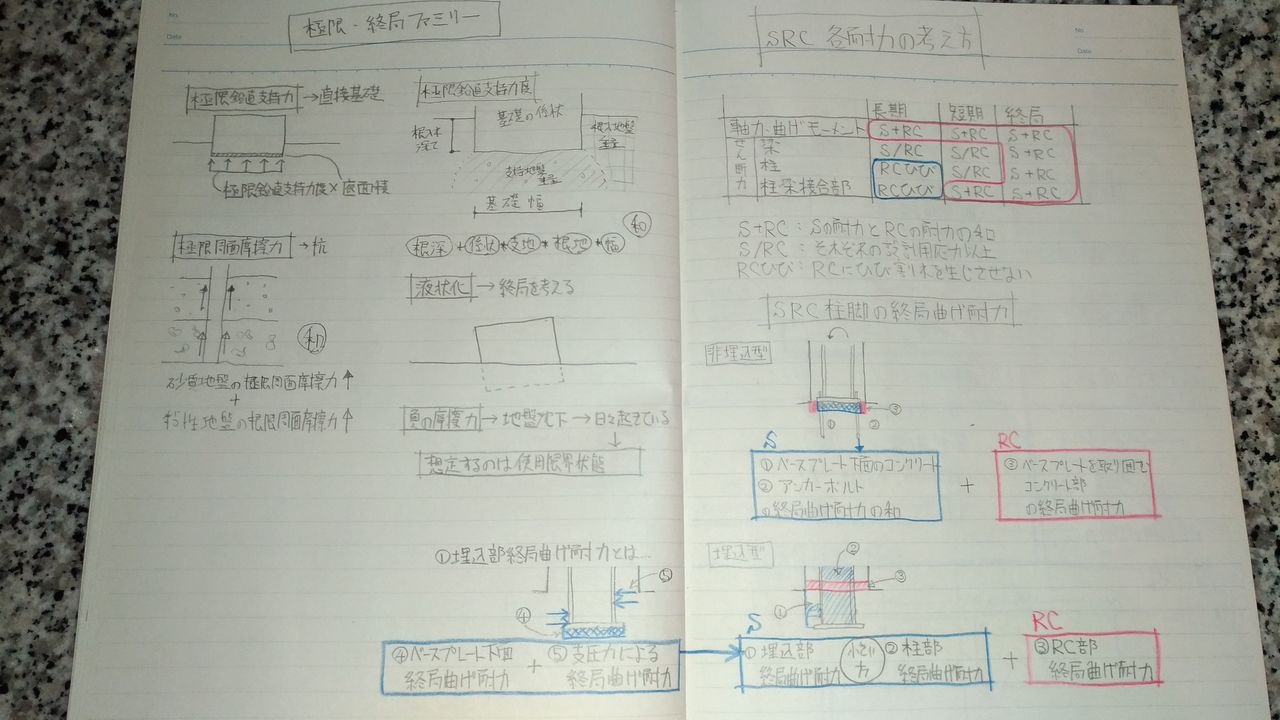 No.
Date
極限・終局ファミリー
極限鉛直支持力 →直接基礎
極限鉛直支持力度×底面積
極限鉛直支持力度
基礎の形状
根入れ
深さ
根入れ地盤
重量
支持地盤
重量
基礎幅
根深+形状+支地+根地+幅
和
極限周面摩擦力 →杭
和
砂質地盤の極限周面摩擦力↑
+
粘性地盤の極限周面摩擦力↑
液状化 →終局を考える
負の摩擦力 →地盤沈下 →日々起きている
↓
想定するのは使用限界状態
①埋込部終局曲げ耐力とは…
④
⑤
④ベースプレート下面
終局曲げ耐力
+
⑤支圧力による
終局曲げ耐力
No
Date
SRC 各耐力の考え方
長期 短期 終局
軸力・曲げモーメント S+RC S+RC S+RC
せん断力
梁 S/RC S/RC S+RC
柱 RCひび S/RC S+RC
柱梁接合部 RCひび S+RC S+RC
S+RC：Sの耐力とRCの耐力の和
S/RC：それぞれの設計用応力以上
RCひび：RCにひび割れを生じさせない
SRC柱脚の終局曲げ耐力
非埋込型
①
②
③
S
①ベースプレート下面のコンクリート
②アンカーボルト
の終局曲げ耐力の和
+
RC
③ベースプレートを取り囲む
コンクリート部
の終局曲げ耐力
埋込型
②
③
①
S
①埋込部
終局曲げ耐力
小さい
方
②柱部
終局曲げ耐力
+
RC
③RC部
終局曲げ耐力